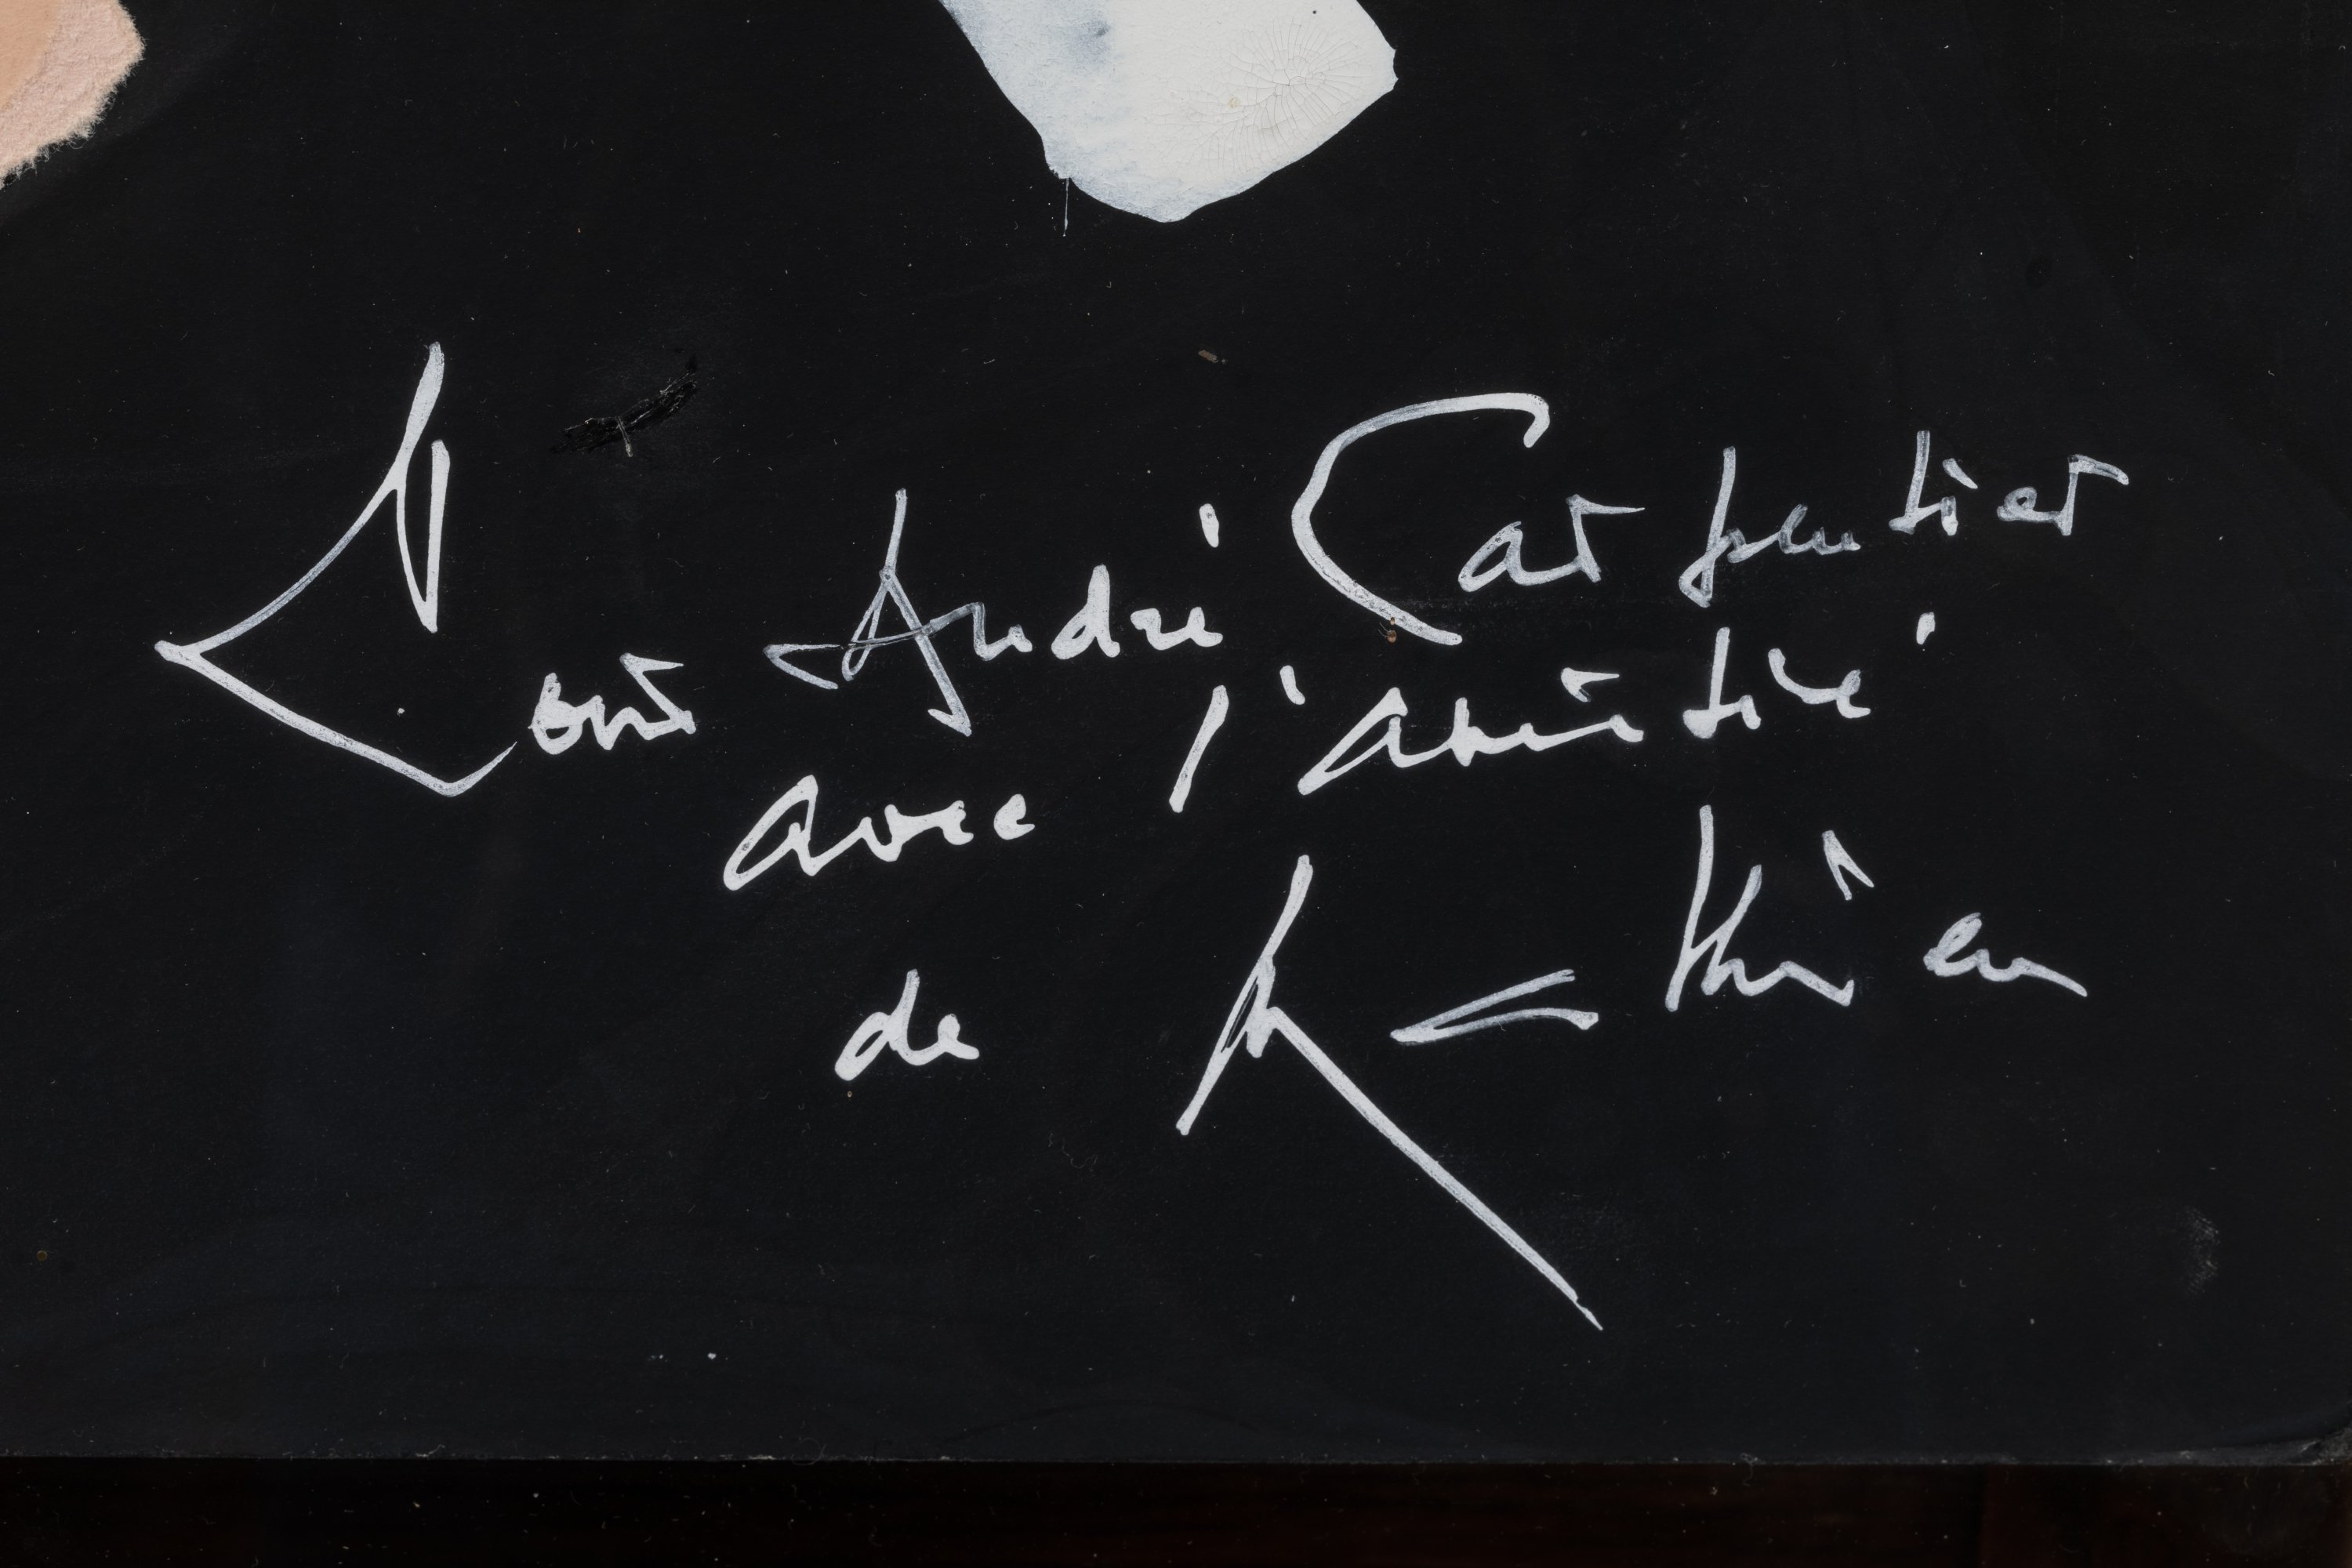 Pour André Carpentier
avec l'amitié
de